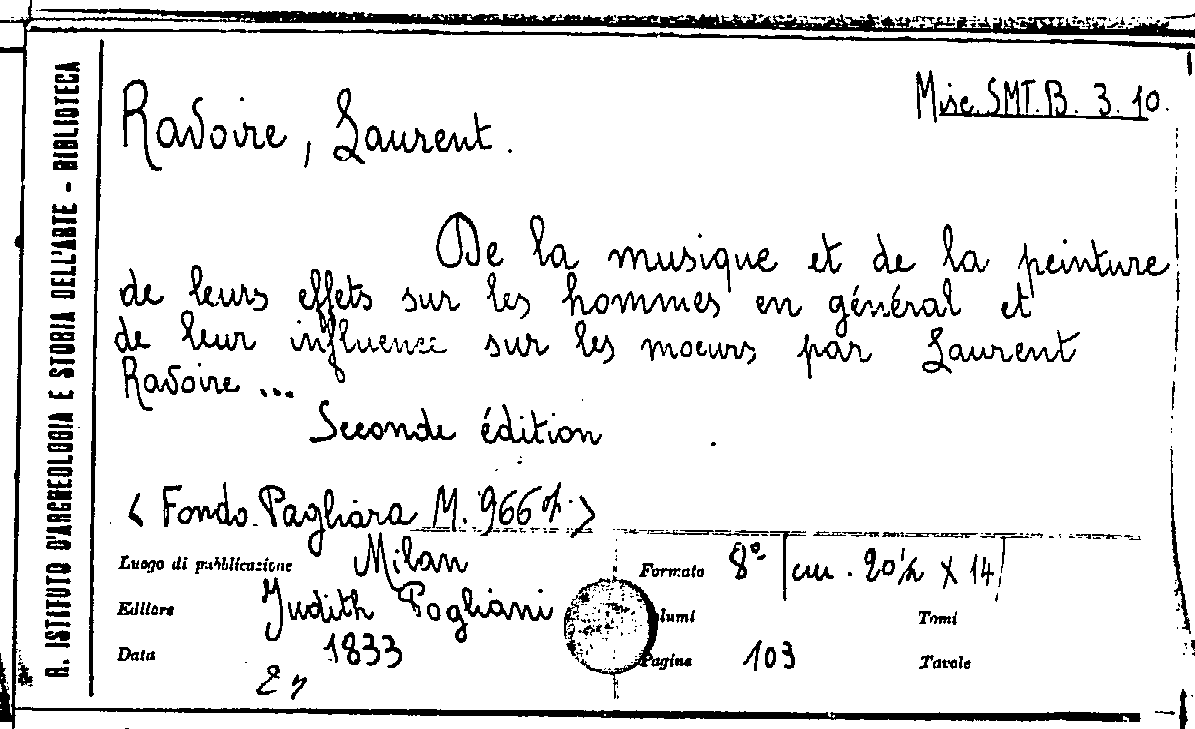 R. ISTITUTO D'ARCHEOLOGIA E STORIA DELL'ARTE - BIBLIOTECA
Misc. SMT. B. 3. 10.
Ravoire, Laurent.
De la musique et de la peinture
de leurs effets sur les hommes en général et
de leur influence sur les moeurs par Laurent
Ravoire ...
Seconde édition
< Fondo Pagliara M. 966 >
Luogo di pubblicazione Milan
Formato 8° cm. 20½ X 14
Editore Judith Pogliani
Volumi
Tomi
Data 1833
Pagine 103
Tavole